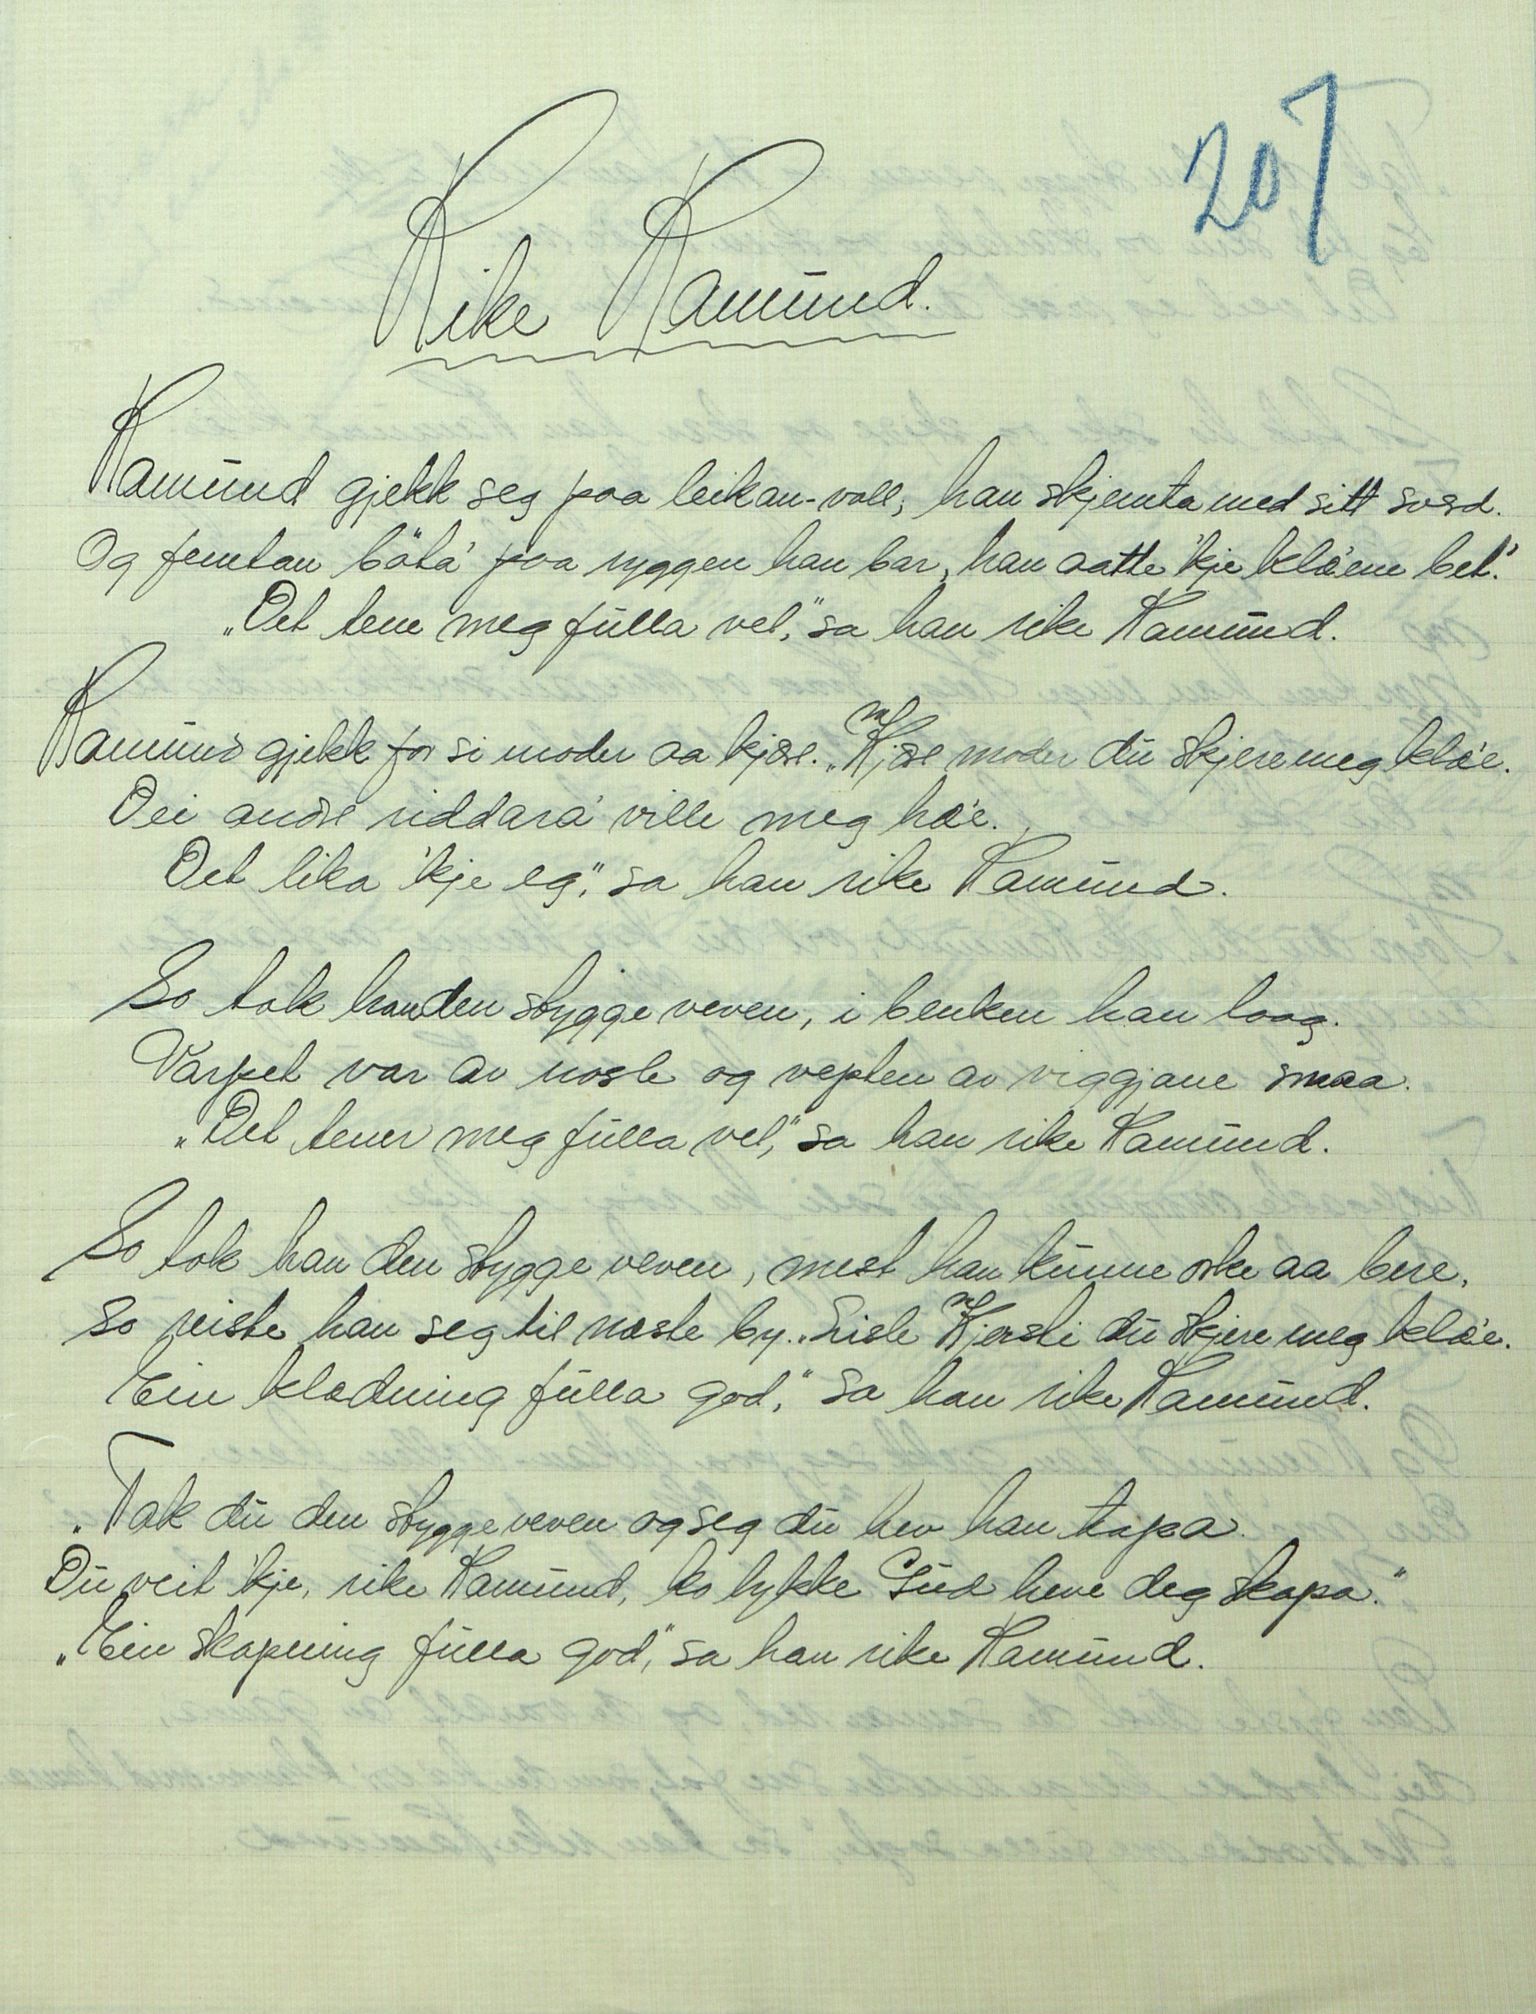 207
Rike Ramund.
Ramund gjekk seg paa leikan-voll, han skjemta med sitt sværd.
Og femtan böta' paa ryggen han bar, han aatte 'kje klæ'ene bet'.
„Det tene meg fulla vel," sa han rike Ramund.
Ramund gjekk for si moder aa kjære. „Kjære moder du skjere meg klæ'e.
Dei andre riddara' ville meg hæ'e.
Det lika 'kje eg," sa han rike Ramund.
So tok han den stygge veven, i benken han laag.
Varpet var av nosle og vepten av viggjane smaa.
„Det tener meg fulla vel," sa han rike Ramund.
So tok han den stygge veven, mest han kunne orke aa bere,
So reiste han seg til næste by. „Lisle Kjersti du skjere meg klæ'e.
Ein klædning fulla god," sa han rike Ramund.
„Tak du den stygge veven og seg du hev han tapa.
Du veit 'kje, rike Ramund, ko lykke Gud heve deg skapa."
„Ein skapning fulla god," sa han rike Ramund.